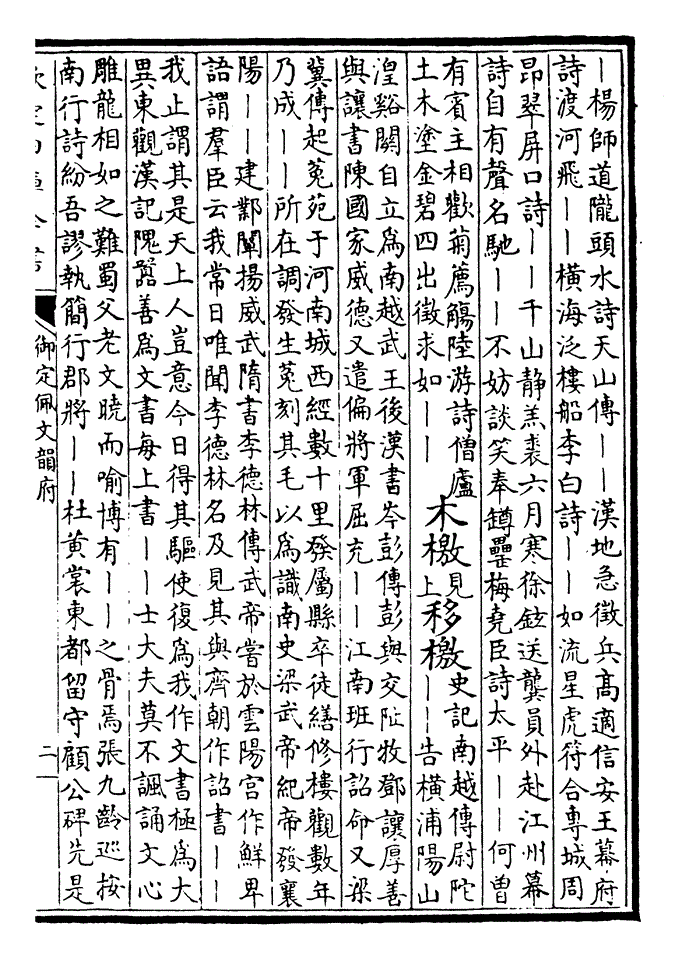 ｜楊師道隴頭水詩天山傳｜｜漢地急徵兵高適信安王幕府
詩渡河飛｜｜橫海泛樓船李白詩｜｜如流星虎符合專城周
昂翠屏口詩｜｜千山静羔裘六月寒徐鉉送龔員外赴江州幕
詩自有聲名馳｜｜不妨談笑奉罇罍梅堯臣詩太平｜｜何曽
有賓主相歡菊薦觴陸游詩僧廬
土木塗金碧四出徵求如｜｜
木檄見上移檄
史記南越傳尉陀
｜｜告橫浦陽山
湟谿關自立為南越武王後漢書岑彭傳彭與交阯牧鄧讓厚善
與讓書陳國家威德又遣偏將軍屈充｜｜江南班行詔命又梁
冀傳起菟苑于河南城西經數十里發屬縣卒徒繕修樓觀數年
乃成｜｜所在調發生菟刻其毛以為識南史梁武帝紀帝發襄
陽｜｜建鄴闡揚威武隋書李德林傳武帝嘗於雲陽宫作鮮卑
語謂羣臣云我常日唯聞李德林名及見其與齊朝作詔書｜｜
我止謂其是天上人豈意今日得其驅使復為我作文書極為大
異東觀漢記隗囂善為文書每上書｜｜士大夫莫不諷誦文心
雕龍相如之難蜀父老文曉而喻博有｜｜之骨焉張九齡巡按
南行詩紛吾謬執簡行郡將｜｜杜黄裳東都留守顧公碑先是
欽定四庫全書
御定佩文韻府
二